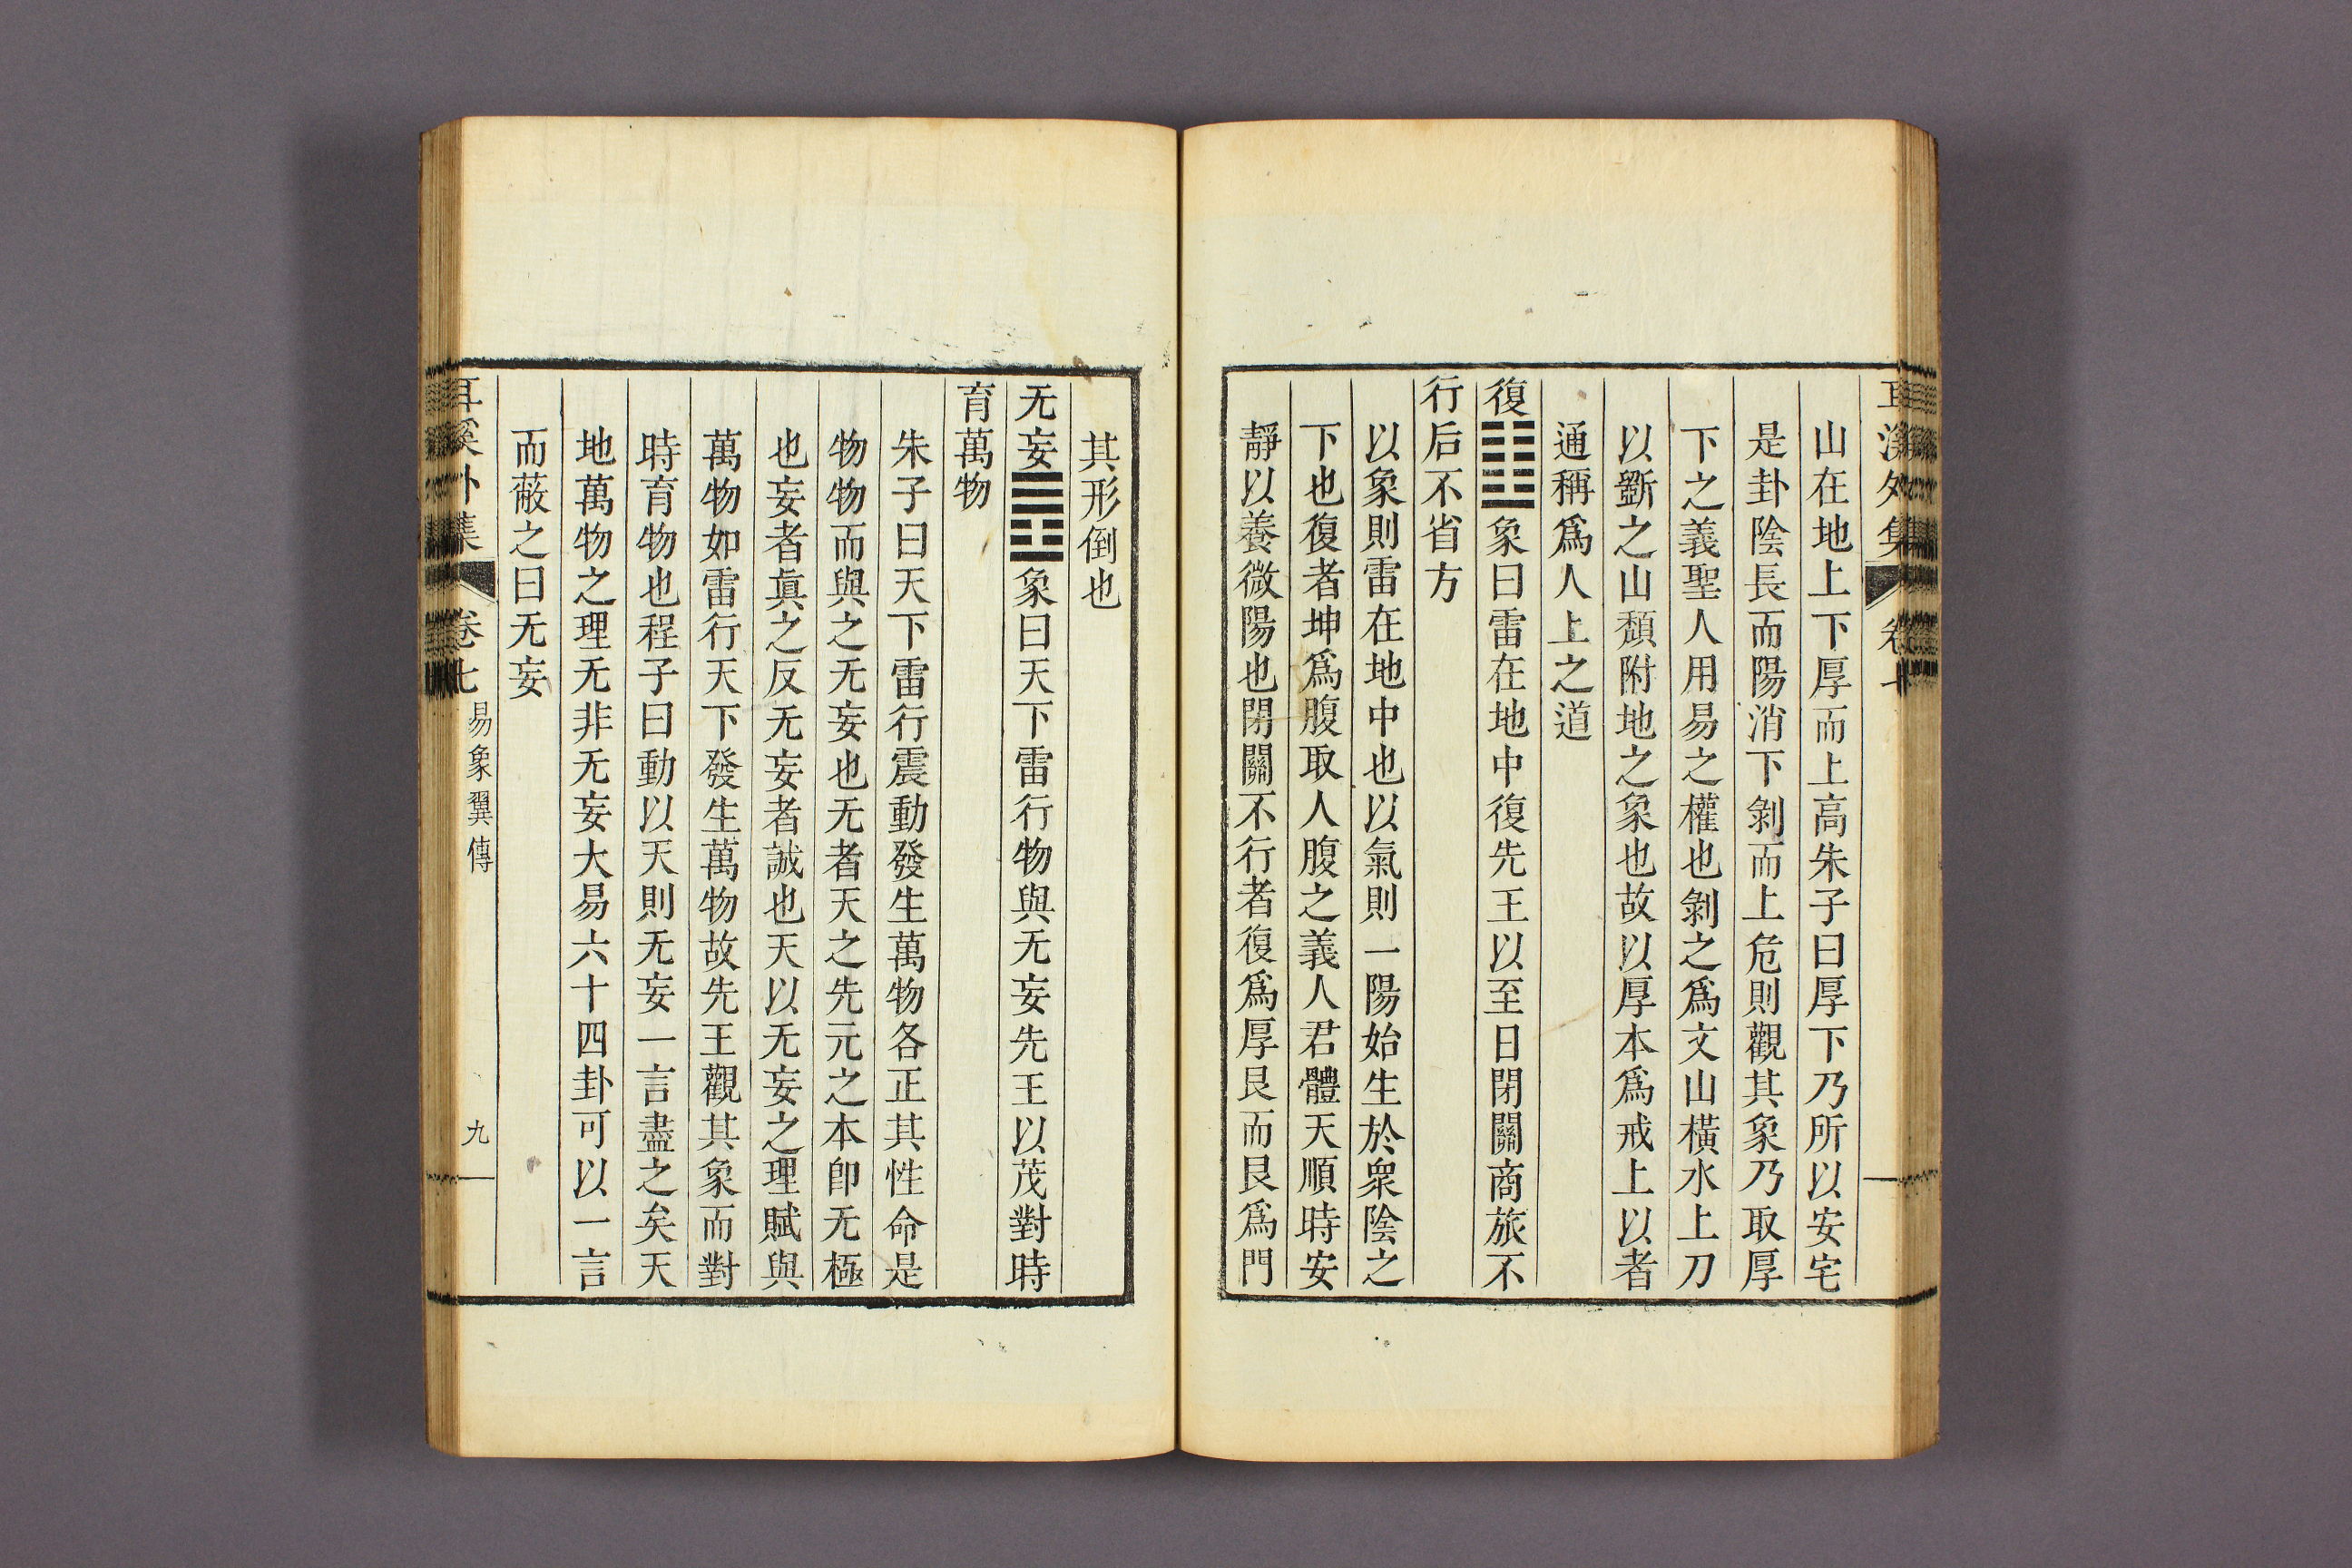 山在地上下厚而上高朱子曰厚下乃所以安宅
是卦陰長而陽消下剝而上危則觀其象乃取厚
下之義聖人用易之權也剝之爲文山橫水上刀
以斵之山頹附地之象也故以厚本爲戒上以者
通稱爲人上之道
復䷗象曰雷在地中復先王以至日閉關商旅不
行后不省方
以象則雷在地中也以氣則一陽始生於衆陰之
下也復者坤爲腹取人腹之義人君體天順時安
靜以養微陽也閉關不行者復爲厚艮而艮爲門
其形倒也
无妄䷘象曰天下雷行物與无妄先王以茂對時
育萬物
朱子曰天下雷行震動發生萬物各正其性命是
物物而與之无妄也无者天之先元之本卽无極
也妄者眞之反无妄者誠也天以无妄之理賦與
萬物如雷行天下發生萬物故先王觀其象而對
時育物也程子曰動以天則无妄一言盡之矣天
地萬物之理无非无妄大易六十四卦可以一言
而蔽之曰无妄
耳溪外集 卷七 易象翼傳 九